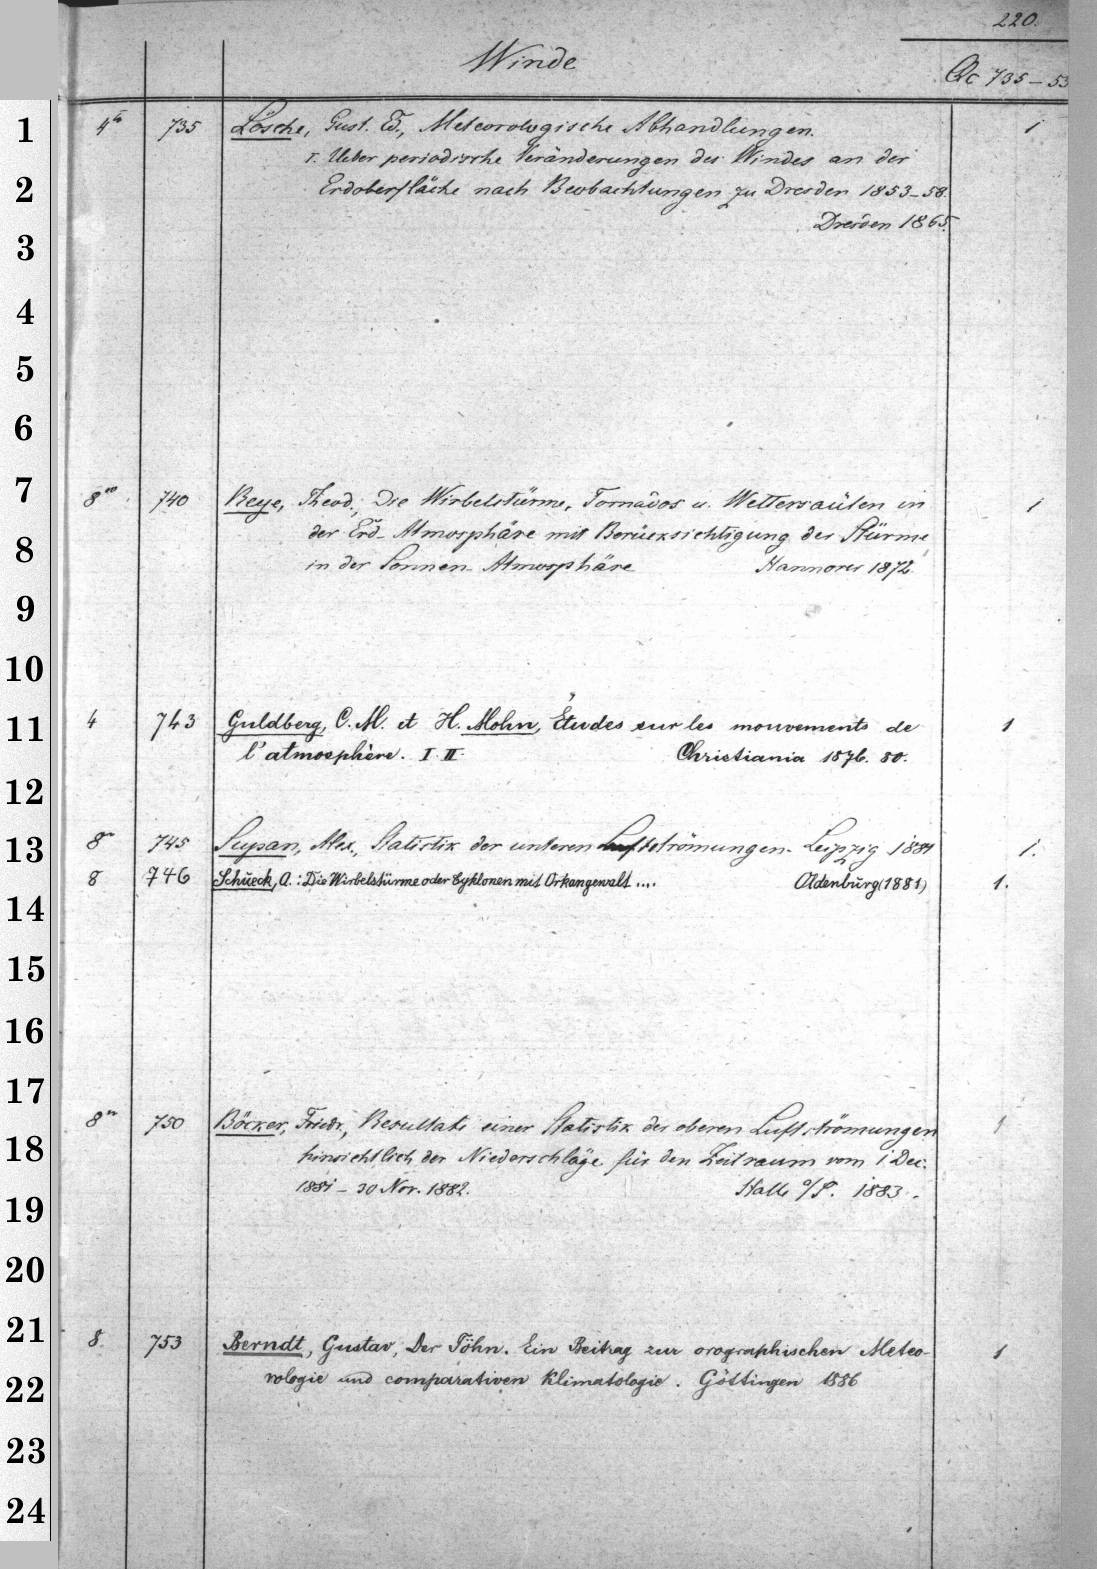 220.
Winde
Qc 735-53
1
4to 735 Lösche, Gust. Ed., Meteorologische Abhandlungen. 1
I. Ueber periodische Veränderungen des Windes an der
2
Erdoberfläche nach Beobachtungen zu Dresden 1853-58.
Dresden 1865.
3
4
5
6
7
8vo 740 Reye, Theod., Die Wirbelstürme, Tornados u. Wettersäulen in 1
der Erd-Atmosphäre mit Berücksichtigung der Stürme
8
in der Sonnen-Atmosphäre Hannover 1872.
9
10
11
4 743 Guldberg, C. M. et H. Mohn, Études sur les mouvements de 1
l'atmosphère. I. II. Christiania 1876. 80.
12
13
8vo 745 Supan, Alex., Statistik der unteren Luftströmungen. Leipzig 1881 1.
8 746 Schück, A.: Die Wirbelstürme oder Cyklonen mit Orkangewalt .... Oldenburg (1881) 1.
14
15
16
17
8vo 750 Böcker, Friedr., Resultate einer Statistik der oberen Luftströmungen 1
18
hinsichtlich der Niederschläge für den Zeitraum vom 1 Dec.
1881 - 30 Nov. 1882. Halle a/S. 1883.
19
20
21
8. 753 Berndt, Gustav, Der Föhn. Ein Beitrag zur orographischen Meteo- 1
rologie und comparativen Klimatologie. Göttingen 1886
22
23
24